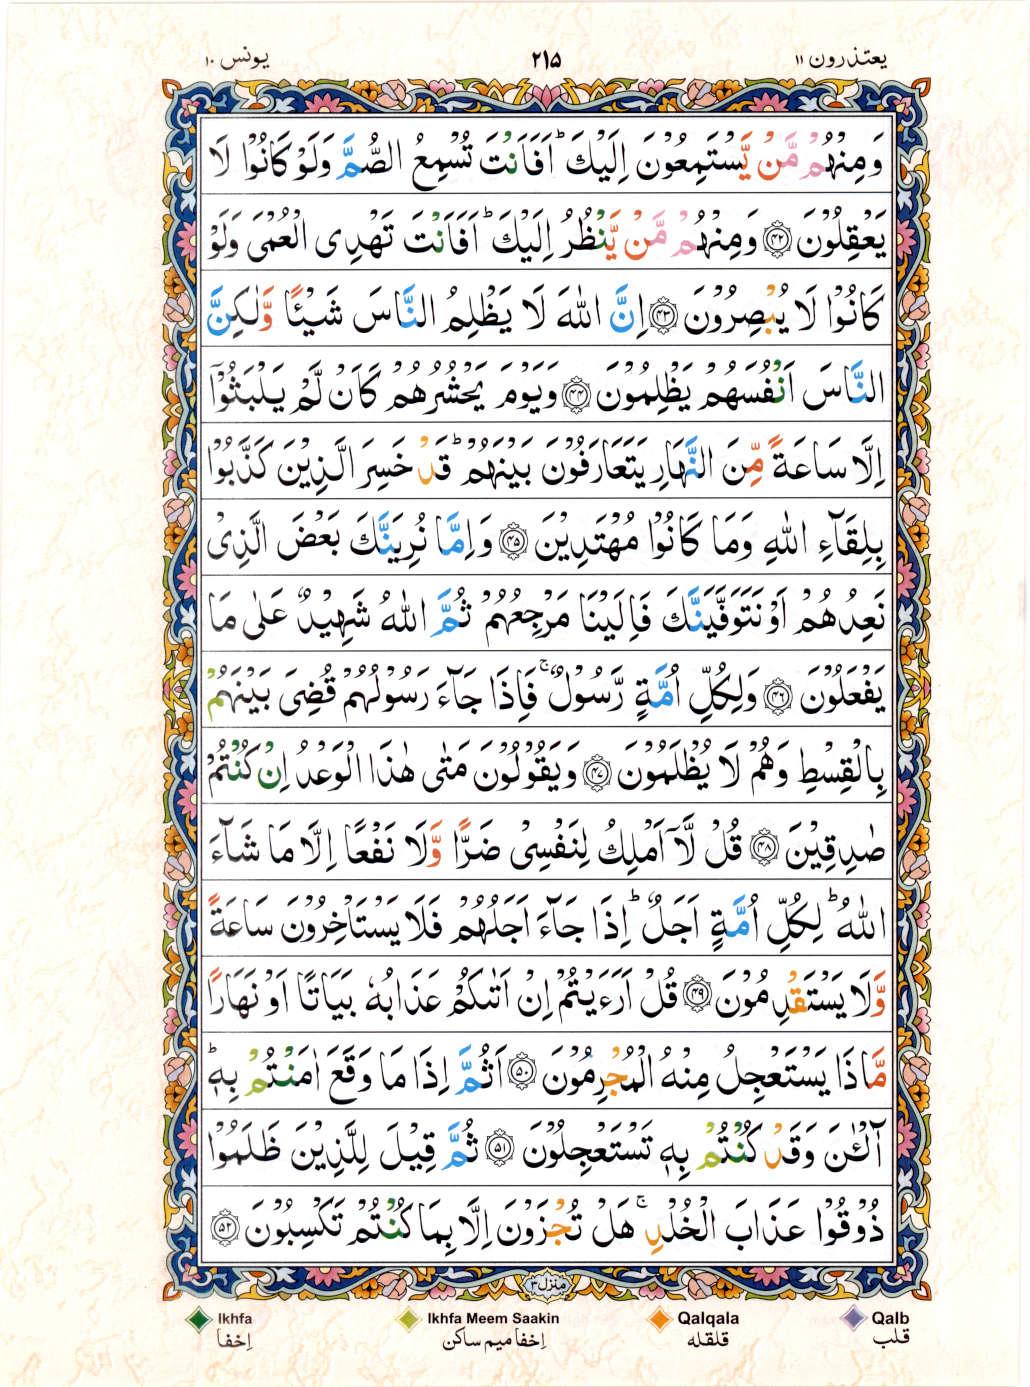 يعتذرون ١١
٢١٥
يونس ١٠
وَمِنْهُمْ مَّنْ يَّسْتَمِعُوْنَ اِلَيْكَ ؕ اَفَاَنْتَ تُسْمِعُ الصُّمَّ وَلَوْ كَانُوْا لَا
يَعْقِلُوْنَ ﴿۴۲﴾ وَمِنْهُمْ مَّنْ يَّنْظُرُ اِلَيْكَ ؕ اَفَاَنْتَ تَهْدِى الْعُمْىَ وَلَوْ
كَانُوْا لَا يُبْصِرُوْنَ ﴿۴۳﴾ اِنَّ اللّٰهَ لَا يَظْلِمُ النَّاسَ شَيْـًٔا وَّلٰـكِنَّ
النَّاسَ اَنْفُسَهُمْ يَظْلِمُوْنَ ﴿۴۴﴾ وَيَوْمَ يَحْشُرُهُمْ كَاَنْ لَّمْ يَلْبَثُوْۤا
اِلَّا سَاعَةً مِّنَ النَّهَارِ يَتَعَارَفُوْنَ بَيْنَهُمْ ؕ قَدْ خَسِرَ الَّذِيْنَ كَذَّبُوْا
بِلِقَآءِ اللّٰهِ وَمَا كَانُوْا مُهْتَدِيْنَ ﴿۴۵﴾ وَاِمَّا نُرِيَنَّكَ بَعْضَ الَّذِىْ
نَعِدُهُمْ اَوْ نَتَوَفَّيَنَّكَ فَاِلَيْنَا مَرْجِعُهُمْ ثُمَّ اللّٰهُ شَهِيْدٌ عَلٰى مَا
يَفْعَلُوْنَ ﴿۴۶﴾ وَلِكُلِّ اُمَّةٍ رَّسُوْلٌ ۚ فَاِذَا جَآءَ رَسُوْلُهُمْ قُضِىَ بَيْنَهُمْ
بِالْقِسْطِ وَهُمْ لَا يُظْلَمُوْنَ ﴿۴۷﴾ وَيَقُوْلُوْنَ مَتٰى هٰذَا الْوَعْدُ اِنْ كُنْتُمْ
صٰدِقِيْنَ ﴿۴۸﴾ قُلْ لَّاۤ اَمْلِكُ لِنَفْسِىْ ضَرًّا وَّلَا نَفْعًا اِلَّا مَا شَآءَ
اللّٰهُ ؕ لِكُلِّ اُمَّةٍ اَجَلٌ ؕ اِذَا جَآءَ اَجَلُهُمْ فَلَا يَسْتَاْخِرُوْنَ سَاعَةً
وَّلَا يَسْتَقْدِمُوْنَ ﴿۴۹﴾ قُلْ اَرَءَيْتُمْ اِنْ اَتٰٮكُمْ عَذَابُهٗ بَيَاتًا اَوْ نَهَارًا
مَّاذَا يَسْتَعْجِلُ مِنْهُ الْمُجْرِمُوْنَ ﴿۵۰﴾ اَثُمَّ اِذَا مَا وَقَعَ اٰمَنْتُمْ بِهٖ ؕ
آٰلْــٰٔنَ وَقَدْ كُنْتُمْ بِهٖ تَسْتَعْجِلُوْنَ ﴿۵۱﴾ ثُمَّ قِيْلَ لِلَّذِيْنَ ظَلَمُوْا
ذُوْقُوْا عَذَابَ الْخُلْدِ ۚ هَلْ تُجْزَوْنَ اِلَّا بِمَا كُنْتُمْ تَكْسِبُوْنَ ﴿۵۲﴾
منزل ٣
Ikhfa
اِخفا
Ikhfa Meem Saakin
اِخفا میم ساکن
Qalqala
قلقله
Qalb
قلب